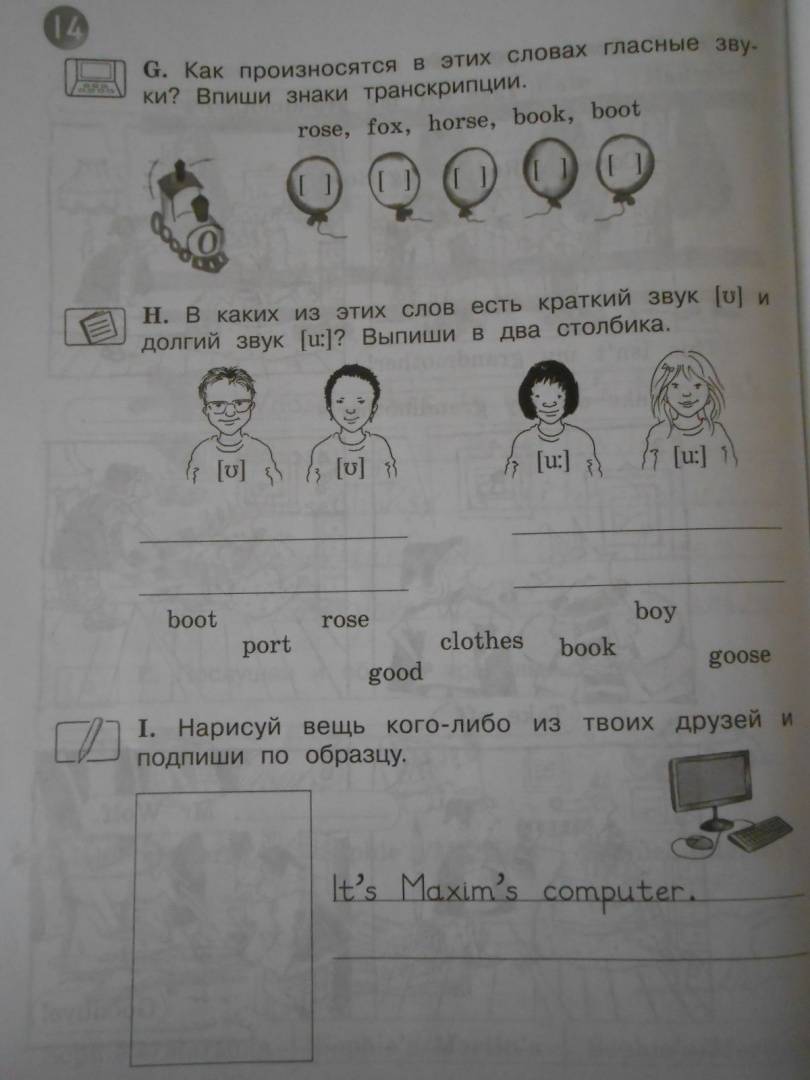 14
G. Как произносятся в этих словах гласные зву-
ки? Впиши знаки транскрипции.
rose, fox, horse, book, boot
[ ] [ ] [ ] [ ] [ ]
O
H. В каких из этих слов есть краткий звук [ʊ] и
долгий звук [u:]? Выпиши в два столбика.
[ʊ] [ʊ] [u:] [u:]
boot rose boy
port clothes book goose
good
I. Нарисуй вещь кого-либо из твоих друзей и
подпиши по образцу.
It's Maxim's computer.